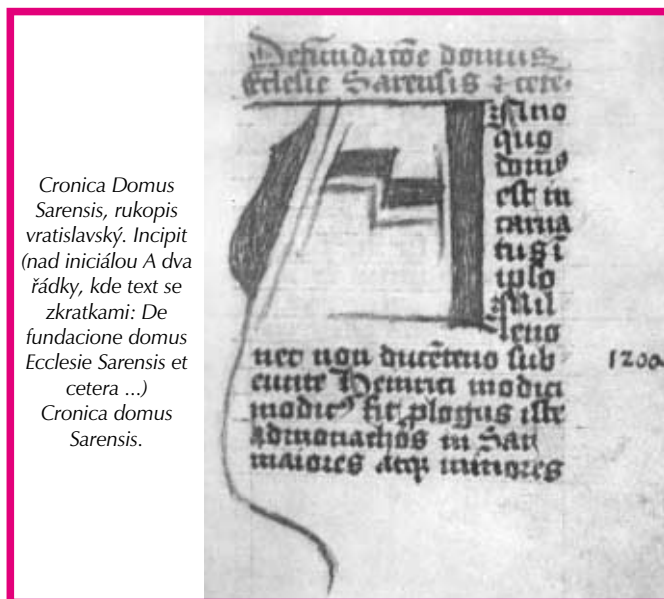 Cronica Domus
Sarensis, rukopis
vratislavský. Incipit
(nad iniciálou A dva
řádky, kde text se
zkratkami: De
fundacione domus
Ecclesie Sarensis et
cetera ...)
Cronica domus
Sarensis.
Defundacōe domus
Ecclesie Sarensis ⁊ cete·
Anno
quo
domꝰ
est in
carna
tus ī
ipso
Mil
leno
nec non ducēteno sub
eunte Heinrici modici
modicꝰ fit plogus iste
Admonachos in Sar
maiores atqꝫ minores